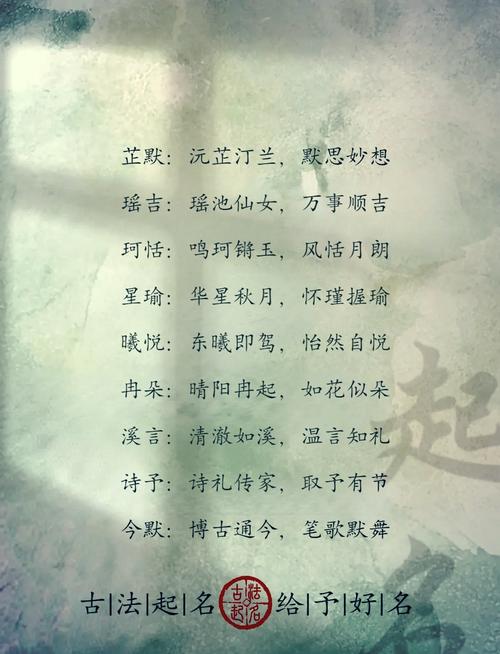 芷默：沅芷汀兰，默思妙想
瑶吉：瑶池仙女，万事顺吉
珂恬：鸣珂锵玉，风恬月朗
星瑜：华星秋月，怀瑾握瑜
曦悦：东曦即驾，怡然自悦
冉朵：晴阳冉起，如花似朵
溪言：清澈如溪，温言知礼
诗予：诗礼传家，取予有节
今默：博古通今，笔歌默舞
起名
古|法|起|名 古法起名 给|予|好|名